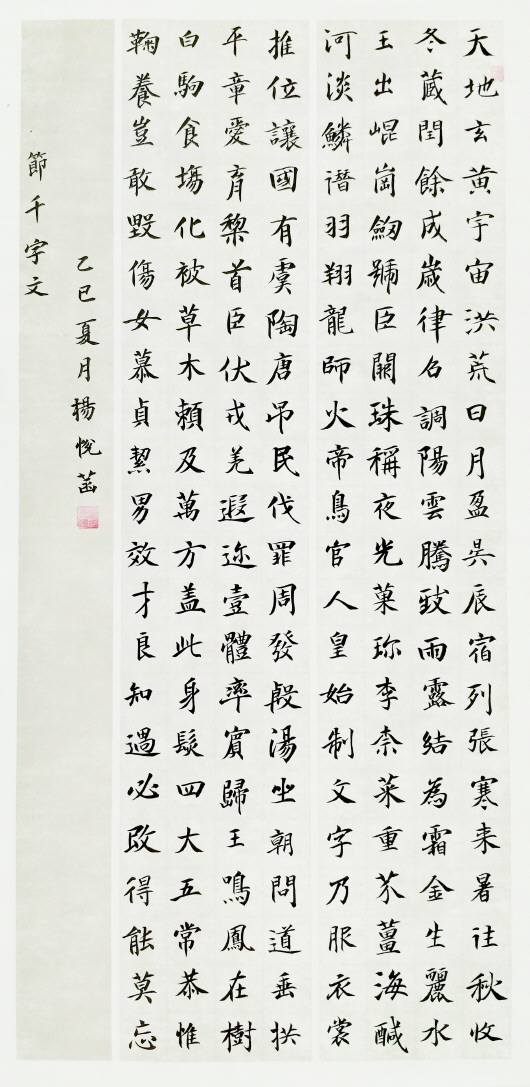 天地玄黃宇宙洪荒日月盈昃辰宿列張寒来暑往秋收
冬藏閏餘成歲律召調陽雲騰致雨露結為霜金生麗水
玉出崐崗劒號巨闕珠稱夜光菓珎李柰菜重芥薑海醎
河淡鱗潛羽翔龍師火帝鳥官人皇始制文字乃服衣裳
推位讓國有虞陶唐吊民伐罪周發殷湯坐朝問道垂拱
平章愛育黎首臣伏戎羌遐迩壹體率賓歸王鳴鳳在樹
白駒食場化被草木賴及萬方盖此身髮四大五常恭惟
鞠養豈敢毀傷女慕貞絜男效才良知過必改得能莫忘
乙巳夏月楊悅菡
節千字文